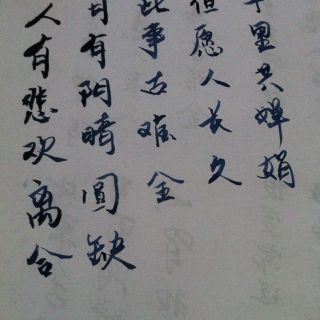 人有悲欢离合
月有阴晴圓缺
此事古难全
但愿人长久
千里共婵娟